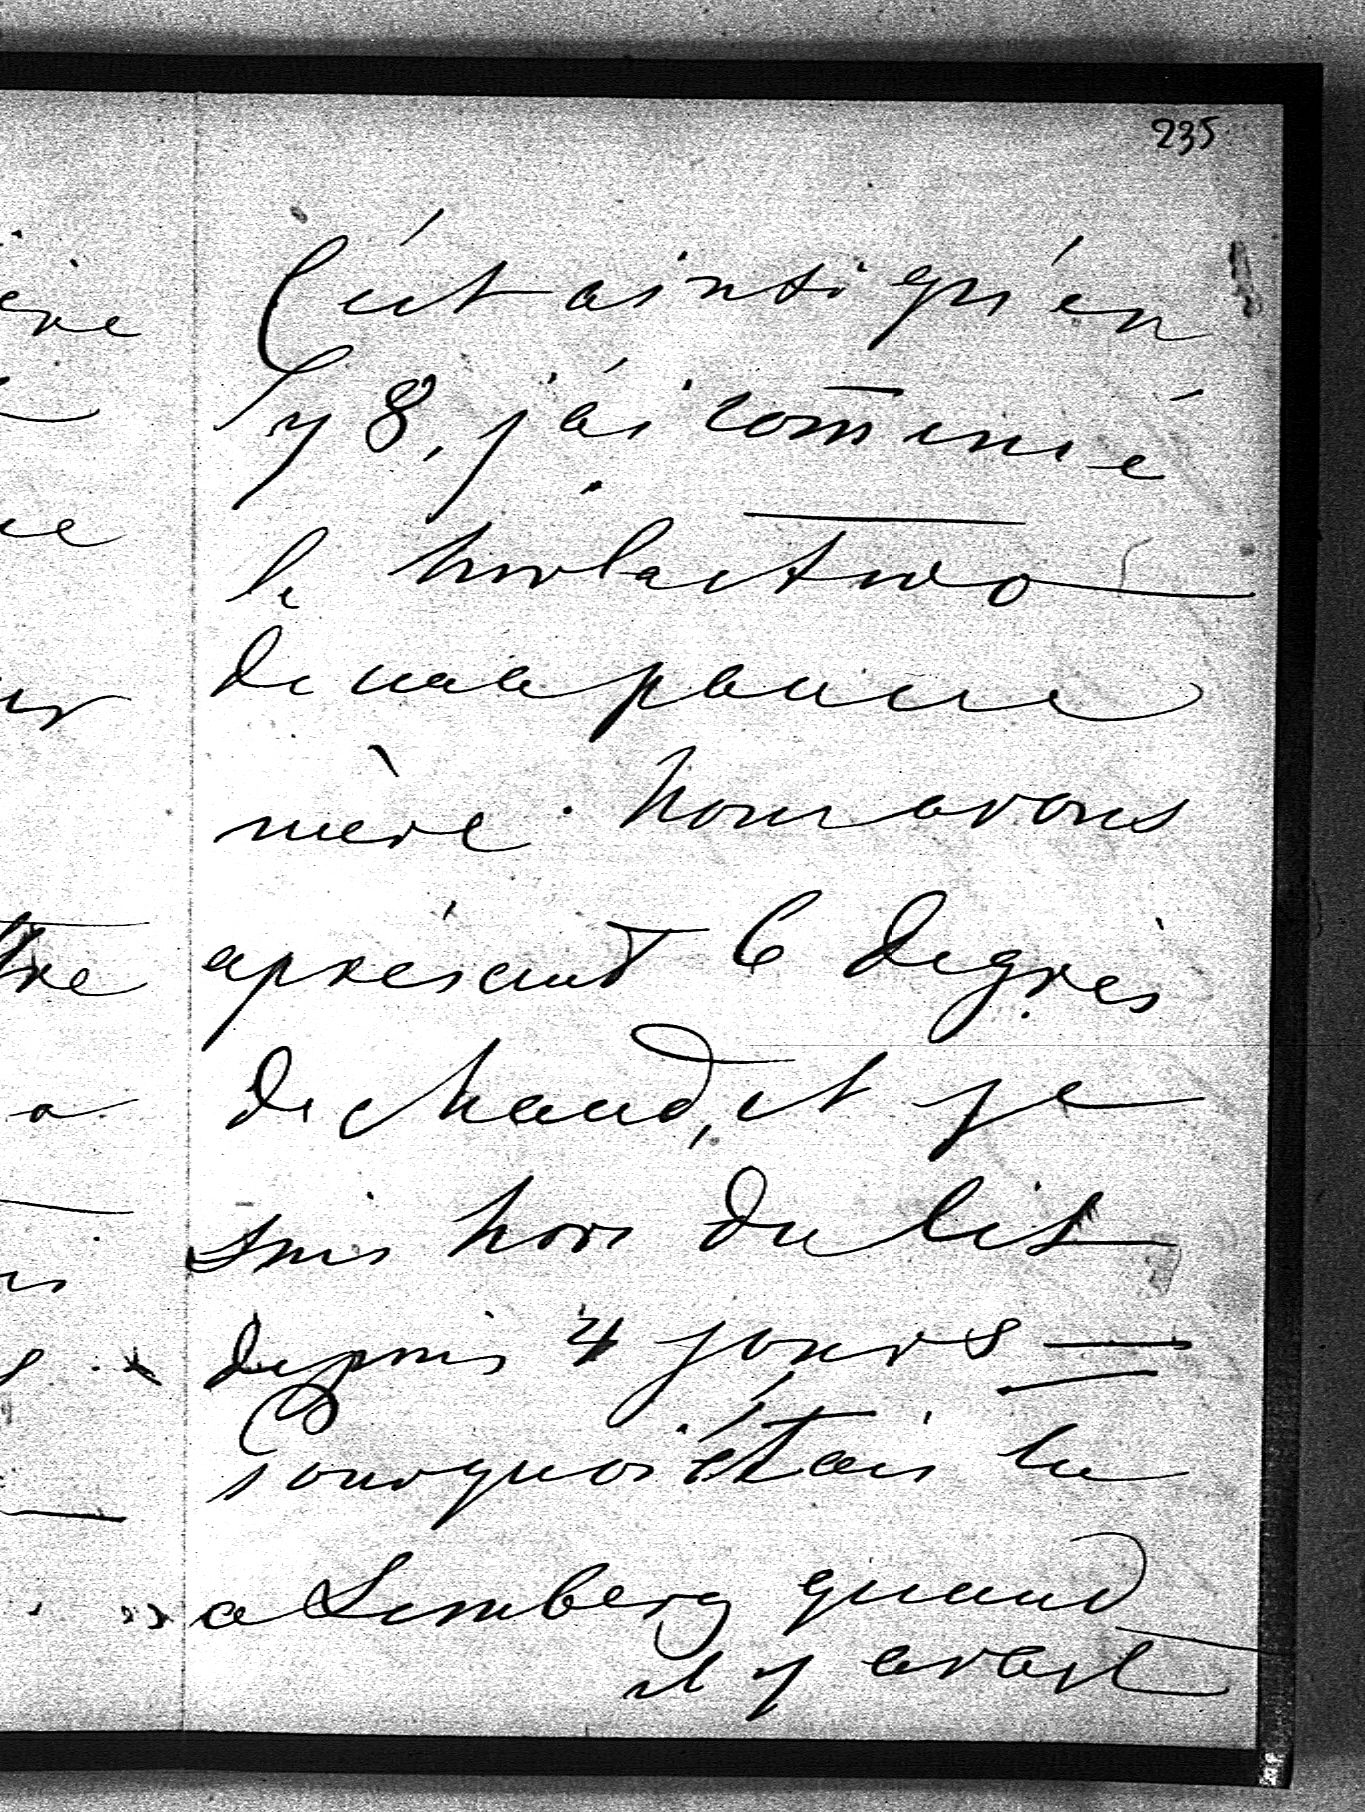 235
C'est ainsi qu'en
58, j'ai com̅encé
le
de ma pauvre
mère. Nous avons
aprésent 6 degrès
de chaud, et je
suis hors du lit
depuis 4 jours —
Pourquoi étais tu
a Lemberg quand
il y avait